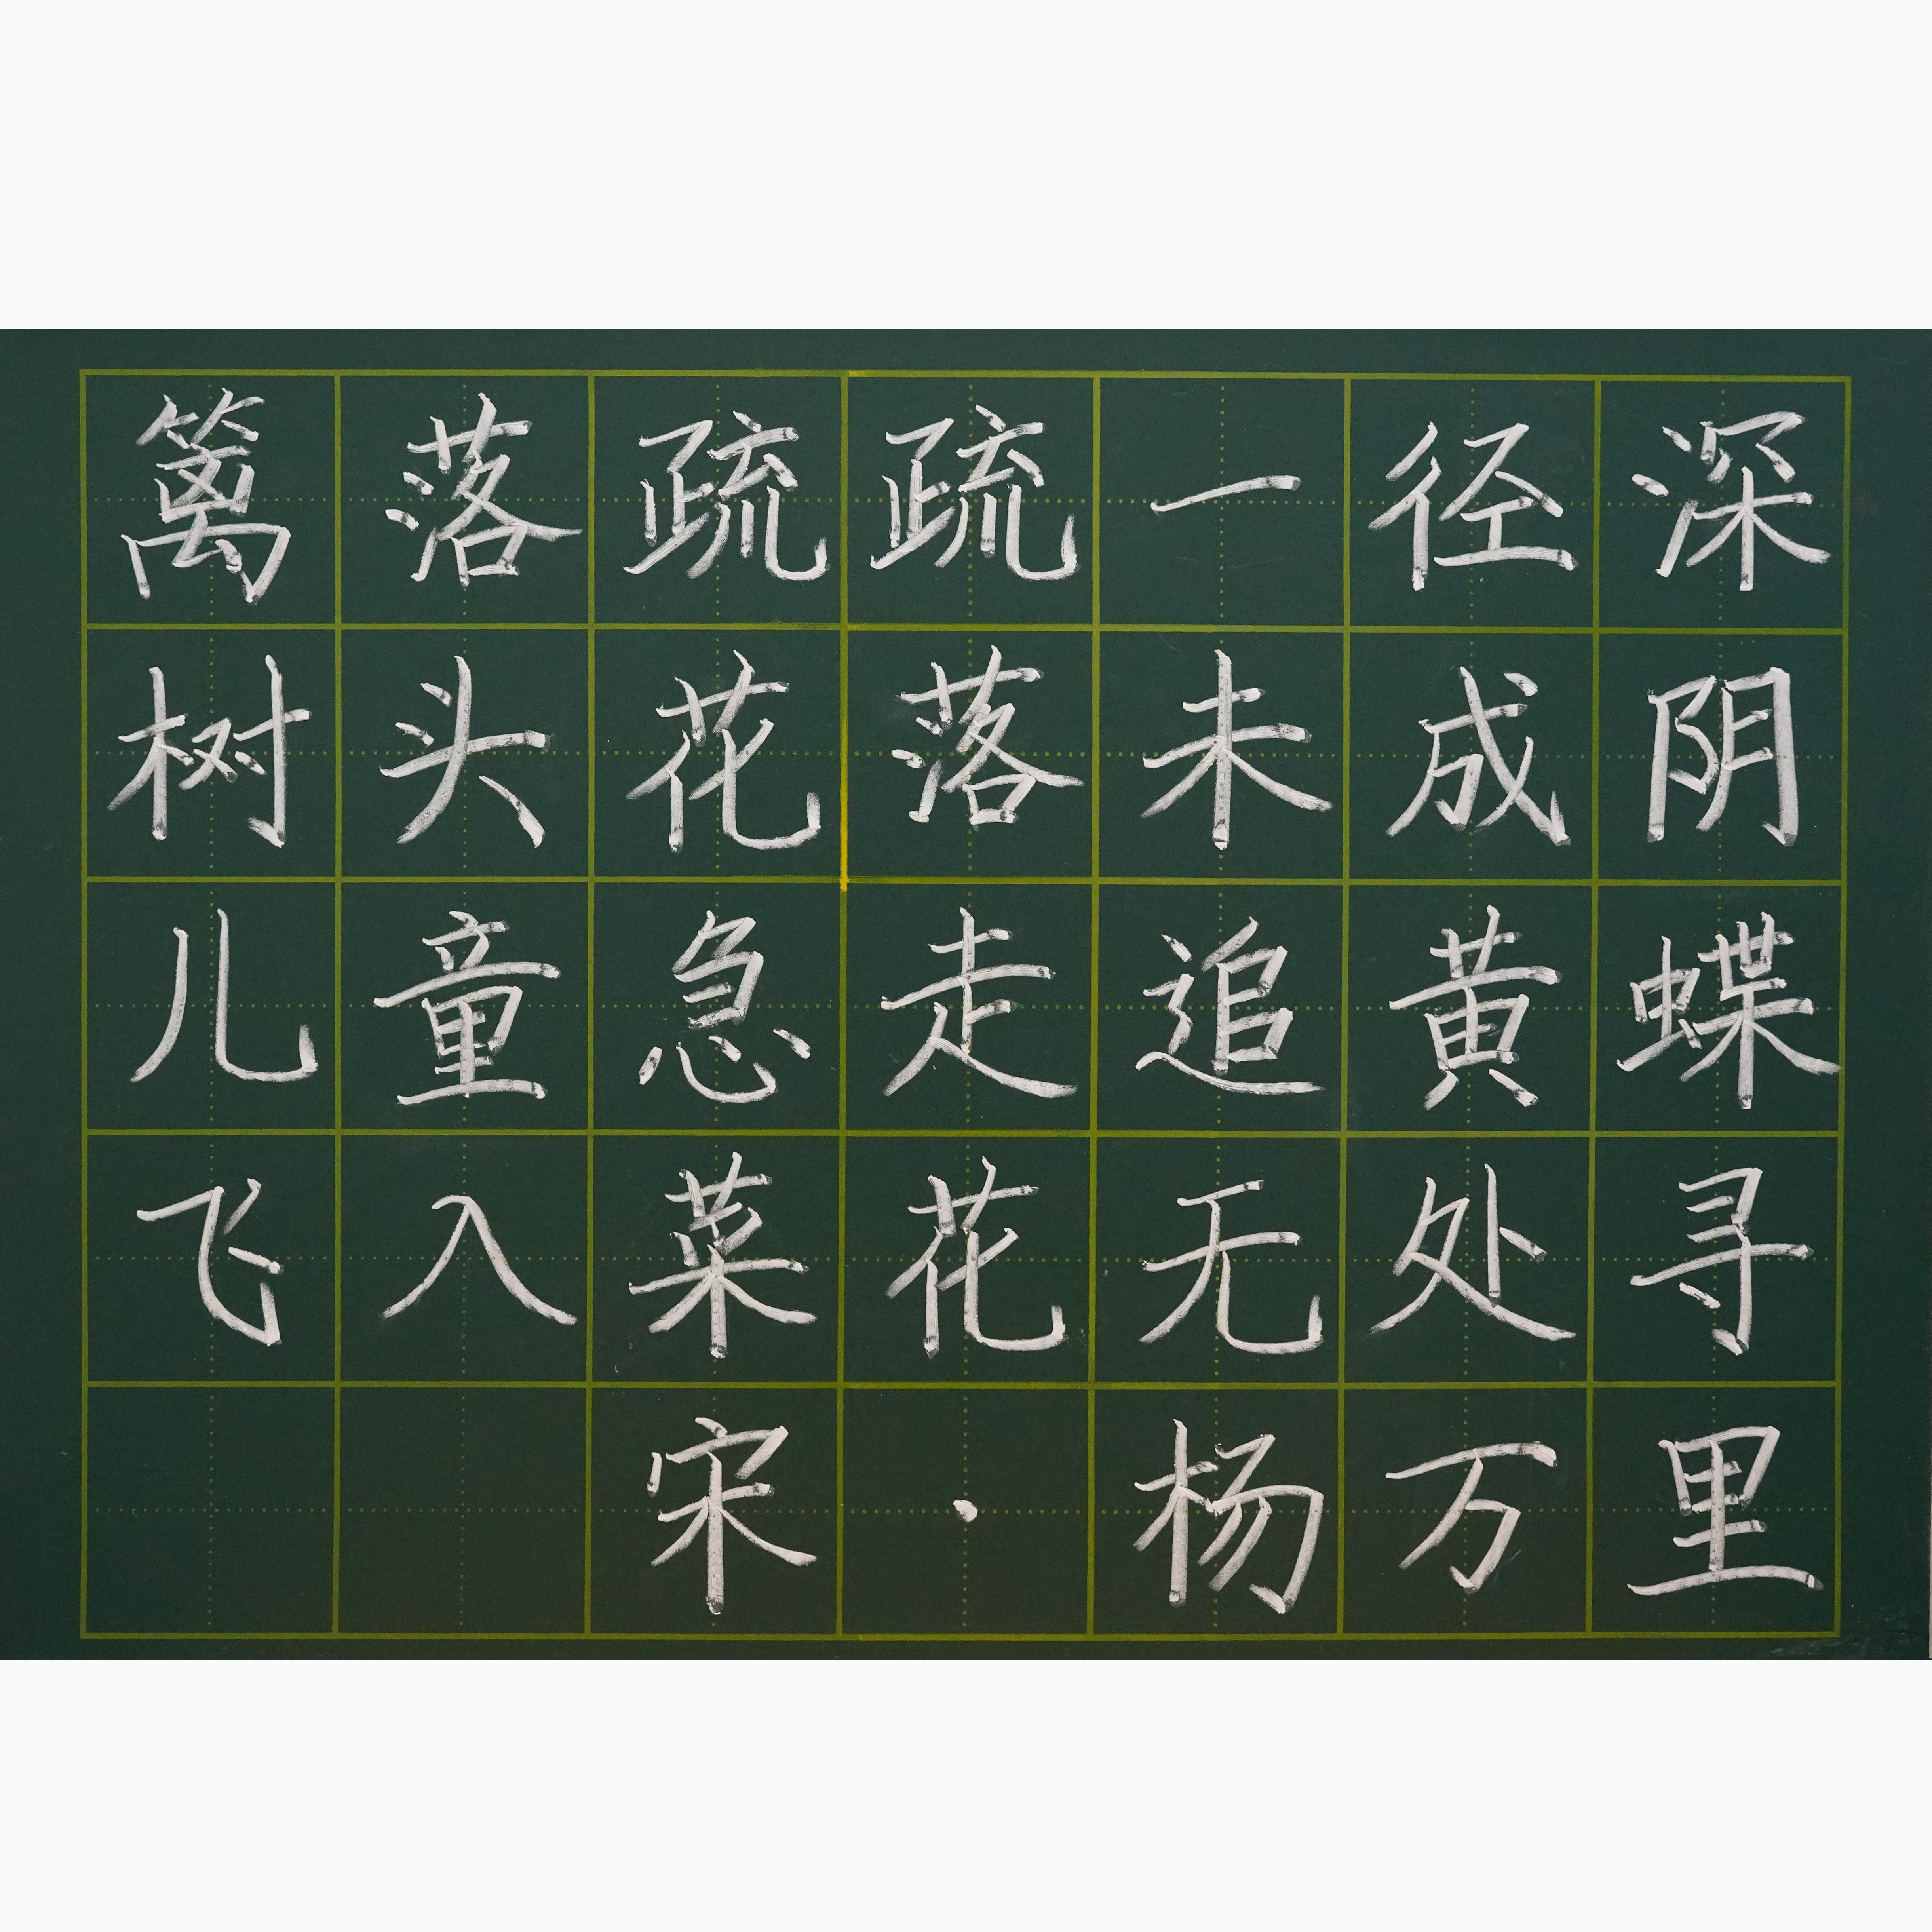 篱落疏疏一径深
树头花落未成阴
儿童急走追黄蝶
飞入菜花无处寻
宋·杨万里